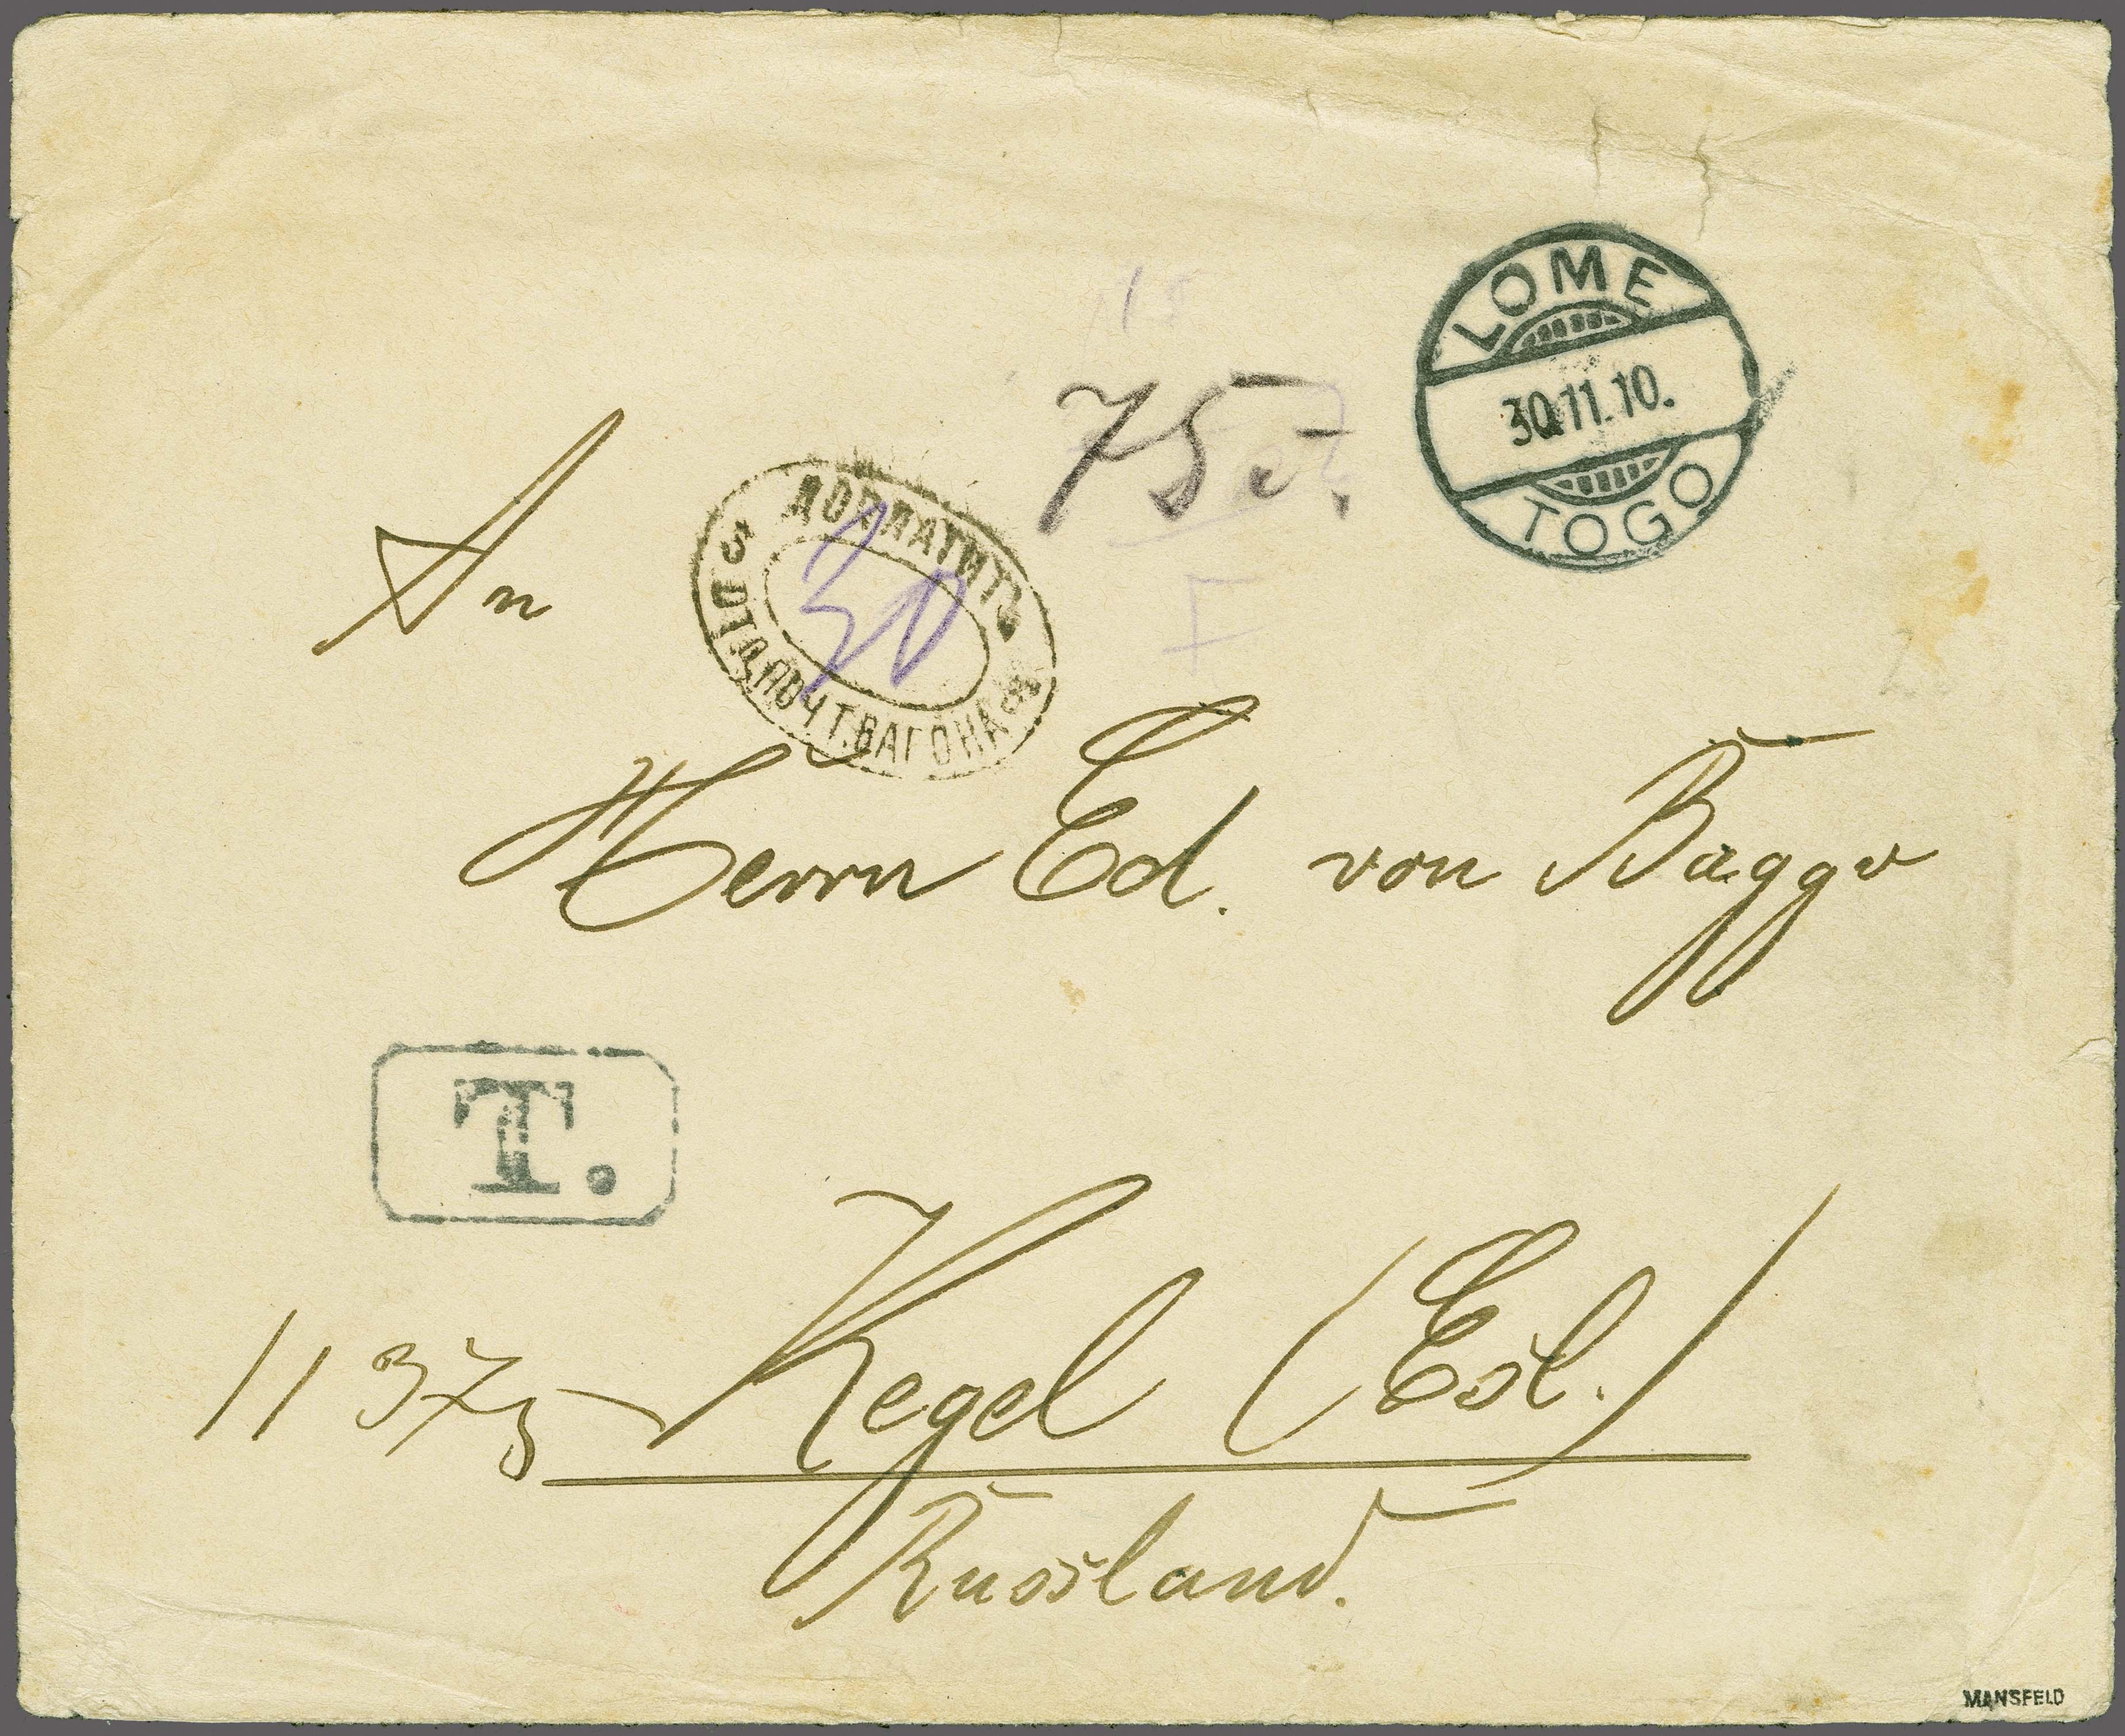 LOME
30.11.10.
TOGO
75 c.
An
ДОПЛАТИТЬ
30
5 ОТД. ПОЧТ. ВАГОНА
Herrn Ed. von Baggo
T.
Kegel (Estl.)
Russland.
MANSFELD